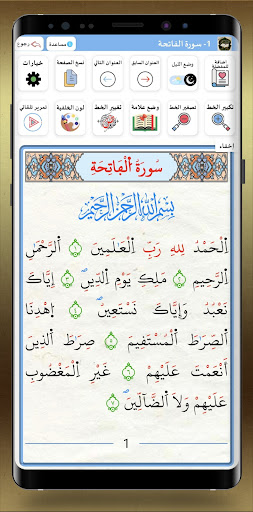 1- سورة الفاتحة
مساعدة
رجوع
إضافة للمفضلة
وضع الليل
العنوان السابق
العنوان التالي
نسخ الصفحة
خيارات
تكبير الخط
تصغير الخط
وضع علامة
تغيير الخط
لون الخلفية
تمرير تلقائي
إخفاء
سُورَةُ ٱلْفَاتِحَةِ
بِسْمِ ٱللَّهِ ٱلرَّحْمَٰنِ ٱلرَّحِيمِ
ٱلْحَمْدُ لِلهِ رَبِّ ٱلْعَٰلَمِينَ ١ ٱلرَّحْمَٰنِ
ٱلرَّحِيمِ ٢ مَلِكِ يَوْمِ ٱلدِّينِ ٣ إِيَّاكَ
نَعْبُدُ وَإِيَّاكَ نَسْتَعِينُ ٤ ٱهْدِنَا
ٱلصِّرَٰطَ ٱلْمُسْتَقِيمَ ٥ صِرَٰطَ ٱلَّذِينَ
أَنْعَمْتَ عَلَيْهِمْ ٦ غَيْرِ ٱلْمَغْضُوبِ
عَلَيْهِمْ وَلَا ٱلضَّآلِّينَ ٧
1